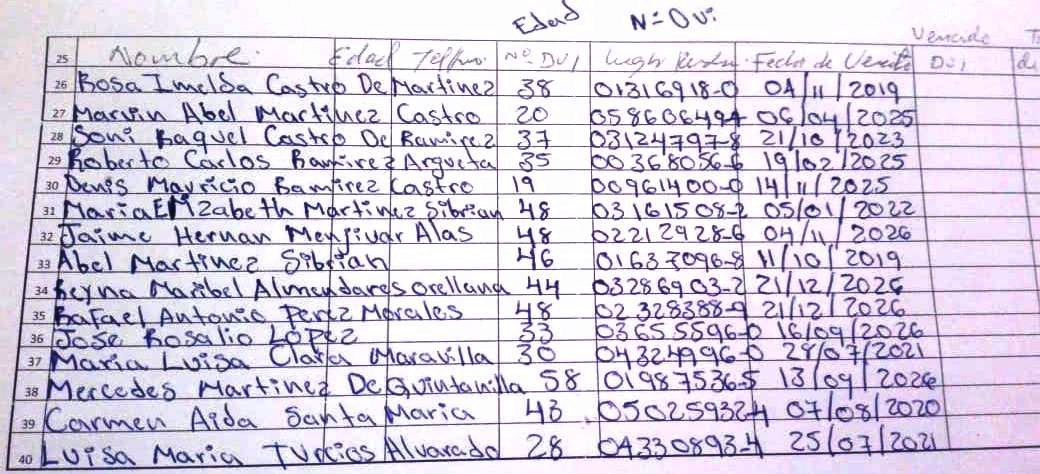 Edad Nº Dui
Vencido
25 Nombre Edad Nº DUI Fecha de DUI
26 Rosa Imelda Castro De Martinez 38 01316918-0 04/11/2019
27 Marvin Abel Martinez Castro 20 058606494 06/04/2025
28 Soni Raquel Castro De Ramirez 37 03124797-8 21/10/2023
29 Roberto Carlos Ramirez Argueta 35 00368056-6 19/02/2025
30 Denis Mauricio Ramirez Castro 19 00961400-0 14/11/2025
31 Maria Elizabeth Martinez Sibrian 48 03161508-2 05/01/2022
32 Jaime Hernan Menjivar Alas 48 02212928-6 04/11/2026
33 Abel Martinez Sibrian 46 01637096-8 11/10/2019
34 Reyna Maribel Almendares Orellana 44 03286903-2 21/12/2026
35 Rafael Antonio Perez Morales 48 02328388-9 21/12/2026
36 Jose Rosalio LOPEZ 33 03655596-0 16/09/2026
37 Maria Luisa Clara Maravilla 30 04324996-0 29/07/2021
38 Mercedes Martinez De Quintanilla 58 01987536-5 13/09/2026
39 Carmen Aida Santa Maria 43 050259324 07/08/2020
40 Luisa Maria Turcios Alvarado 28 04330893-4 25/07/2021